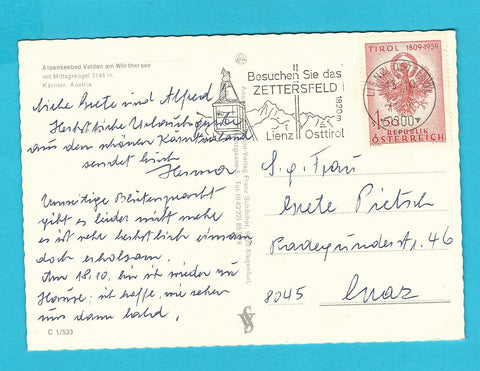 Alpenseebad Velden am Wörthersee
mit Mittagskogel 2144 m,
Kärnten, Austria
Liebe Grete und Alfred
Herbstliche Urlaubsgrüße
aus dem schönen Kärntnerland
sendet Euch
Herma
Unmäßige Blütenpracht
gibt es leider nicht mehr
es ist sehr herbstlich einsam
doch erholsam.
Am 18.10. bin ich wieder zu
Hause, ich hoffe, wir sehen
uns dann bald.
C 1/533
Besuchen Sie das
ZETTERSFELD
1820m
Lienz Osttirol
Franz Schilcher, 9020 Klagenfurt,
Tel. (04222)
TIROL 1809-1959
LIENZ OSTTIROL
1.50
REPUBLIK
ÖSTERREICH
S.g. Frau
Grete Pietsch
Radegunderstr. 46
8045 Graz